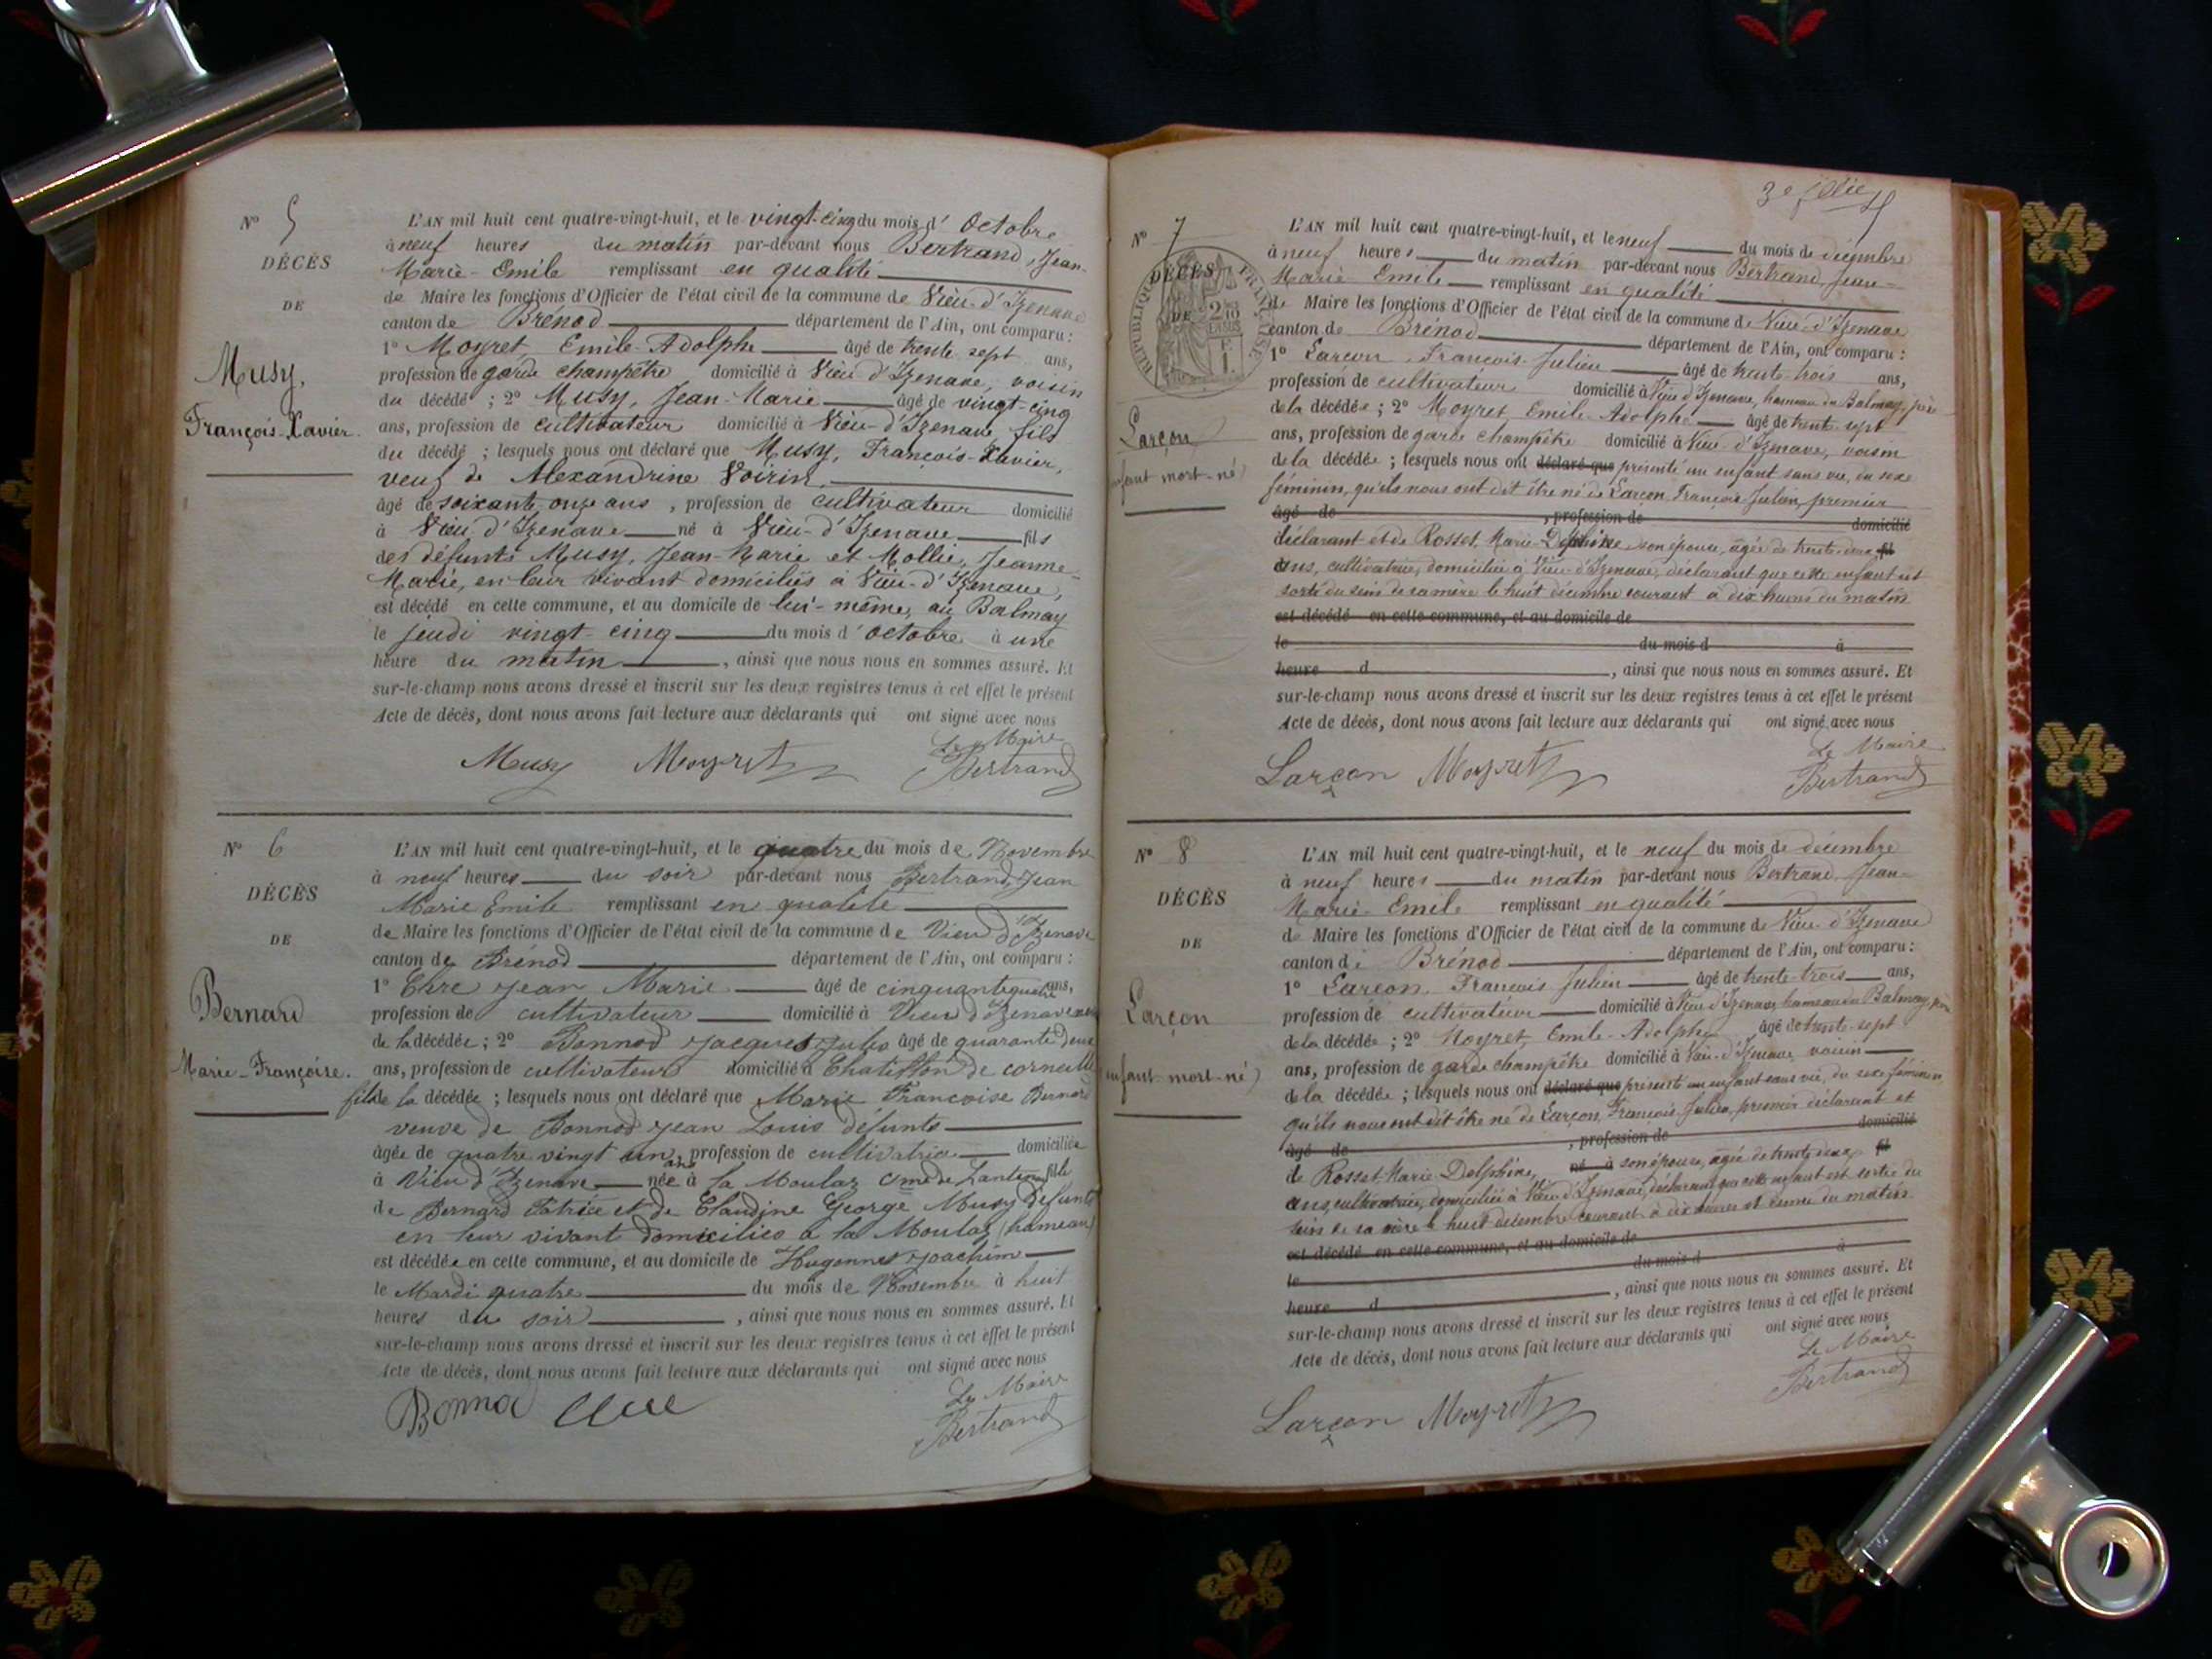 N° 5
DÉCÈS
DE
Musy,
François-Xavier.
L'AN mil huit cent quatre-vingt-huit, et le vingt-cinq du mois d'Octobre
à neuf heures du matin par-devant nous Bertrand, Jean-
Marie-Emile remplissant en qualité
de Maire les fonctions d'Officier de l'état civil de la commune de Vieu-d'Izenave
canton de Brénod département de l'Ain, ont comparu :
1° Moyret Emile-Adolphe âgé de trente sept ans,
profession de garde champêtre domicilié à Vieu d'Izenave, voisin
du décédé ; 2° Musy, Jean-Marie âgé de vingt-cinq
ans, profession de cultivateur domicilié à Vieu-d'Izenave, fils
du décédé ; lesquels nous ont déclaré que Musy, François-Xavier,
veuf de Alexandrine Voirin,
âgé de soixante onze ans, profession de cultivateur domicilié
à Vieu d'Izenave né à Vieu-d'Izenave fils
des défunts Musy, Jean-Marie et Mollie, Jeanne-
Marie, en leur vivant domiciliés à Vieu-d'Izenave,
est décédé en cette commune, et au domicile de lui-même, au Balmay
le jeudi vingt-cinq du mois d'octobre à une
heure du matin, ainsi que nous nous en sommes assuré. Et
sur-le-champ nous avons dressé et inscrit sur les deux registres tenus à cet effet le présent
Acte de décès, dont nous avons fait lecture aux déclarants qui ont signé avec nous
Le Maire
Musy Moyret Bertrand
N° 6
DÉCÈS
DE
Bernard
Marie-Françoise.
L'AN mil huit cent quatre-vingt-huit, et le quatre du mois de Novembre
à neuf heures du soir par-devant nous Bertrand, Jean
Marie Emile remplissant en qualité
de Maire les fonctions d'Officier de l'état civil de la commune de Vieu d'Izenave
canton de Brénod département de l'Ain, ont comparu :
1° Jean Marie âgé de cinquante quatre ans,
profession de cultivateur domicilié à Vieu d'Izenave
de la décédée ; 2° Bonnod Jacques âgé de quarante deux
ans, profession de cultivateur domicilié à Chatillon de corneille
fils de la décédée ; lesquels nous ont déclaré que Marie Françoise Bernard
veuve de Bonnod Jean Louis défunts
âgée de quatre vingt un ans, profession de cultivatrice domiciliée
à Vieu d'Izenave née à la Moulaz Cne de Lantenay fille
de Bernard Patrice et de Claudine George Musy défunts
en leur vivant domiciliés à la Moulaz (hameau)
est décédée en cette commune, et au domicile de Hugonnet Joachim
le Mardi quatre du mois de Novembre à huit
heures du soir, ainsi que nous nous en sommes assuré. Et
sur-le-champ nous avons dressé et inscrit sur les deux registres tenus à cet effet le présent
Acte de décès, dont nous avons fait lecture aux déclarants qui ont signé avec nous
Le Maire
Bonnod Bertrand
3e
N° 7
DÉCÈS
DE
RÉPUBLIQUE FRANÇAISE
Larçon
(enfant mort-né)
L'AN mil huit cent quatre-vingt-huit, et le neuf du mois de décembre
à neuf heures du matin par-devant nous Bertrand, Jean-
Marie Emile remplissant en qualité
de Maire les fonctions d'Officier de l'état civil de la commune de Vieu-d'Izenave
canton de Brénod département de l'Ain, ont comparu :
1° Larçon, François-Julien âgé de trente-trois ans,
profession de cultivateur domicilié à Vieu d'Izenave, hameau du Balmay, père
de la décédée ; 2° Moyret Emile-Adolphe âgé de trente-sept
ans, profession de garde champêtre domicilié à Vieu-d'Izenave, voisin
de la décédée ; lesquels nous ont déclaré que présenté un enfant sans vie, du sexe
féminin, qu'ils nous ont dit être né de Larçon François Julien, premier
âgé de , profession de domicilié
déclarant et de Rosset, Marie-Delphine son épouse, âgée de trente-deux fil
ans, cultivatrice, domiciliée à Vieu-d'Izenave, déclarant que cette enfant est
sortie du sein de sa mère le huit décembre courant à dix heures du matin
est décédé en cette commune, et au domicile de
le du mois d à
heure d , ainsi que nous nous en sommes assuré. Et
sur-le-champ nous avons dressé et inscrit sur les deux registres tenus à cet effet le présent
Acte de décès, dont nous avons fait lecture aux déclarants qui ont signé avec nous
Le Maire
Larçon Moyret Bertrand
N° 8
DÉCÈS
DE
Larçon
(enfant mort-né)
L'AN mil huit cent quatre-vingt-huit, et le neuf du mois de décembre
à neuf heures du matin par-devant nous Bertrand, Jean-
Marie-Emile remplissant en qualité
de Maire les fonctions d'Officier de l'état civil de la commune de Vieu-d'Izenave
canton de Brénod département de l'Ain, ont comparu :
1° Larçon, François Julien âgé de trente-trois ans,
profession de cultivateur domicilié à Vieu d'Izenave, hameau du Balmay, père
de la décédée ; 2° Moyret, Emile-Adolphe âgé de trente-sept
ans, profession de garde champêtre domicilié à Vieu-d'Izenave, voisin
de la décédée ; lesquels nous ont déclaré que présenté un enfant sans vie, du sexe féminin
qu'ils nous ont dit être né de Larçon, François-Julien, premier déclarant et
âgé de , profession de domicilié
de Rosset Marie-Delphine, né à son épouse, âgée de trente deux fil
ans, cultivatrice, domiciliée à Vieu d'Izenave, déclarant que cette enfant est sortie du
sein de sa mère le huit décembre courant à dix heures et demie du matin
est décédé en cette commune, et au domicile de
le du mois d à
heure d , ainsi que nous nous en sommes assuré. Et
sur-le-champ nous avons dressé et inscrit sur les deux registres tenus à cet effet le présent
Acte de décès, dont nous avons fait lecture aux déclarants qui ont signé avec nous
Le Maire
Larçon Moyret Bertrand